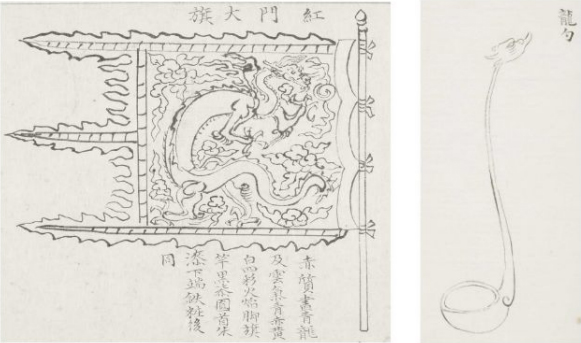 紅門大旗
赤質畫青龍
及雲氣青赤黃
白四彩火焰脚旗
竿黑柒圓首朱
漆下端鉄粧後
同
龍勺